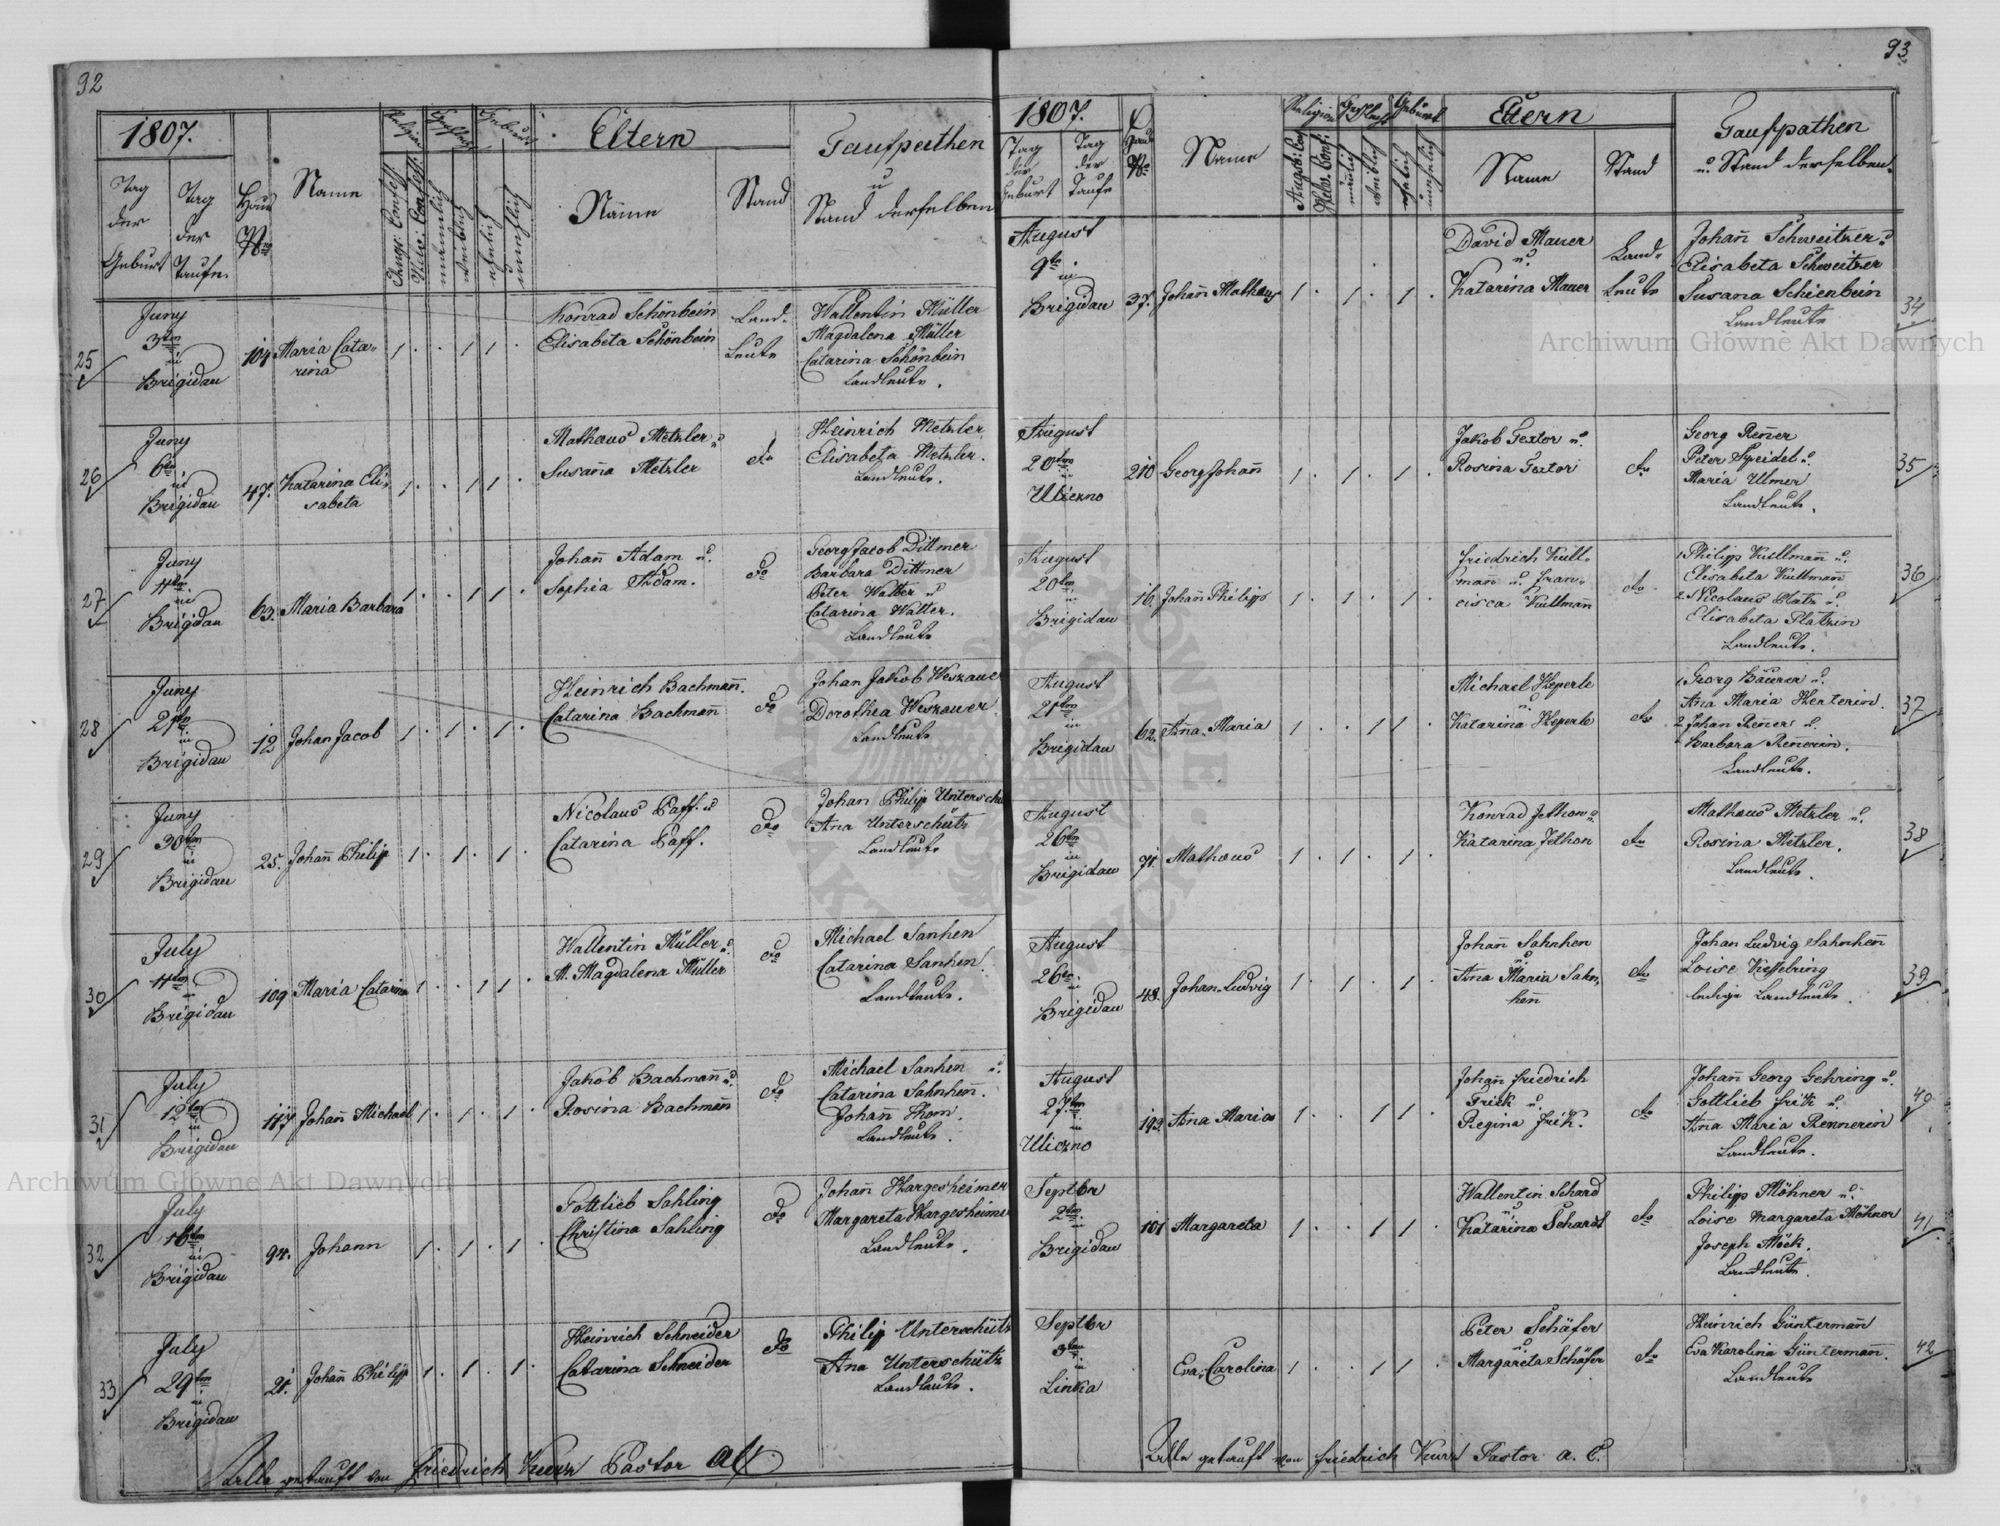 92
1807.
Religion
Geschlecht
Geburt
Eltern
Taufpathen
u
Stand derselben
Tag
der
Geburt
Tag
der
Taufe
Haus
No
Name
Augsp: Confess:
Helv: Confess:
männlich
weiblich
ehelich
unehelich
Name
Stand
25
Juny
3ten
in
Brigidau
104
Maria Cata-
rina
1 . . 1 1 .
Konrad Schönbein
Elisabeta Schönbein
Land-
Leute
Wallentin Müller
Magdalena Müller
Catarina Schönbein
Landleute.
26
Juny
6ten
in
Brigidau
47.
Katarina Eli-
sabeta
1 . . 1 1 .
Mathaus Metzler u
Susanna Metzler
do
Heinrich Metzler
Elisabeta Metzler.
Landleute.
27
Juny
11ten
in
Brigdau
63.
Maria Barbara
1 . . 1 1 .
Johann Adam u.
Sophia Adam.
do
Georg Jacob Dittmer
Barbara Dittmer
Peter Walter u
Catarina Walter.
Landleute
28
Juny
21ten
in
Brigidau
12
Johan Jacob
1 . 1 . 1 .
Heinrich Bachmann.
Catarina Bachmann
do
Johan Jakob Weszauer
Dorothea Weszauer
Landleute
29
Juny
30ten
in
Brigidau
25.
Johann Philip
1 . 1 . 1 .
Nicolaus Paff. u
Catarina Paff.
do
Johan Philip Unterschü
Ana Unterschütz
Landleute
30
July
11ten
in
Brigidau
109
Maria Catarina
1 . . 1 1 .
Wallentin Müller u
M. Magdalena Müller
do
Michael Sanhen
Catarina Sanhen.
Landleute.
31
July
12ten
in
Brigidau
117
Johann Michael
1 . 1 . 1 .
Jakob Bachmann u.
Rosina Bachmann
do
Michael Sanhen u.
Catarina Sahnhenn.
Johann Thom.
Landleute.
32
July
16ten
in
Brigidau
94.
Johann
1 . 1 . 1 .
Gottlieb Sahling
Christina Sahling
do
Johann Hargesheimer
Margareta Hargesheimer
Landleute.
33
July
29ten
in
Brigidau
21.
Johann Philipp
1 . 1 . 1 .
Heinrich Schneider
Catarina Schneider
do
Philip Unterschütz
Ana Unterschütz
Landleute.
Alle getauft von Friedrich Kurz Pastor AC
93
1807.
Religion
Geschlecht
Geburt
Eltern
Taufpathen
u. Stand derselben.
Tag
der
Geburt
Tag
der
Taufe
Haus
No
Name
Augsb: Con
Helv. Conf.
mänlich
weiblich
ehelich
unehelich
Name
Stand
August
9ten
in
Brigidau
37.
Johann Mathaus
1 . 1 . 1 .
David Mauer
u.
Katarina Mauer
Land-
Leute
Johann Schweitzer u
Elisabeta Schweitzer
Susana Schienbein
Landleute
34
August
20ten
in
Uliczno
210
Georg Johann
1 . 1 . 1 .
Jakob Textor u.
Rosina Textor
do
Georg Renner
Peter Speidel u.
Maria Ulmer
Landleute.
35
August
20ten
in
Brigidau
16.
Johann Philipp
1 . 1 . 1 .
Friedrich Kull-
mann u. Fran-
cisca Kullmann
do
1 Philipp Kullmann u.
Elisabeta Kullmann
2 Nicolaus Platz u.
Elisabeta Platzin
Landleute.
36
August
21ten
in
Brigidau
62.
Ana Maria
1 . . 1 1 .
Michael Heperle
u.
Katarina Heperle
do
1 Georg Bäurer u.
Ana Maria Herterin.
2 Johan Rener u.
Barbara Rennerin.
Landleute.
37
August
26ten
in
Brigidau
71.
Mathaus
1 . 1 . 1 .
Konrad Jethon u
Katarina Jethon
do
Mathaus Metzler u.
Rosina Metzler.
Landleute.
38
August
26ten
in
Brigidau
48.
Johan Ludvig
1 . 1 . 1 .
Johann Sahnhen
u.
Ana Maria Sahn-
henn
do
Johan Ludvig Sahnhenn
Loise Kesselring
ledige Landleute.
39
August
27ten
in
Uliczno
193.
Ana Maria
1 . . 1 1 .
Johann Friedrich
Frick u.
Regina Frik.
do
Johann Georg Gehring u.
Gottlieb Frik u.
Ana Maria Rennerin
Landleute.
40
Septbr
2ten
in
Brigidau
101
Margareta
1 . . 1 1 .
Wallentin Schard
u.
Katarina Schardt
do
Philipp Möhner u.
Loise Margareta Möhner
Joseph Möck.
Landleute.
41
Septbr
3ten
in
Linka
Eva Carolina
1 . . 1 1 .
Peter Schäfer
u.
Margareta Schäfer
do
Heinrich Güntermann
Eva Karolina Güntermann.
Landleute
42
Alle getauft von Friedrich Kurz Pastor A. C.
Archiwum Główne Akt Dawnych
Archiwum Główne Akt Dawnych